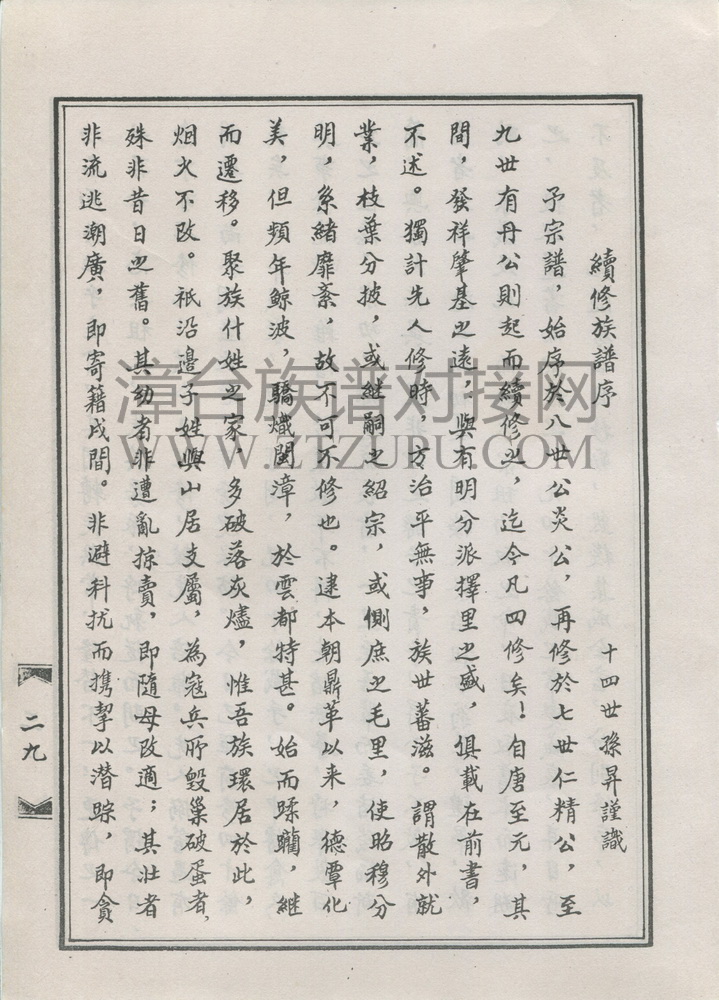 續修族譜序
十四世孫昇謹識
予宗譜,始序於八世公炎公,再修於七世仁精公,至
九世有丹公則起而續修之,迄今凡四修矣!自唐至元,其
間,發祥肇基之遠,與有明分派擇里之盛,俱載在前書,
不述。獨計先人修時,方治平無事,族世蕃滋。謂散外就
業,枝葉分披,或繼嗣之紹宗,或側庶之毛里,使昭穆分
明,系緒靡紊,故不可不修也。逮本朝鼎革以來,德覃化
美,但頻年鲸波,驕熾閩漳,於雲都特甚。始而蹂躪,継
而遷移。聚族什姓之家,多破落灰燼,惟吾族環居於此,
烟火不改。祇沿邉子姓與山居支屬,為寇兵所毀巢破蛋者,
殊非昔日之舊。其幼者非遭亂掠賣,即隨母改適;其壯者
非流逃潮廣,即寄籍戍間。非避科扰而携挈以潜踪,即貪
二九
漳台族谱对接网
WWW.ZTZUPU.COM